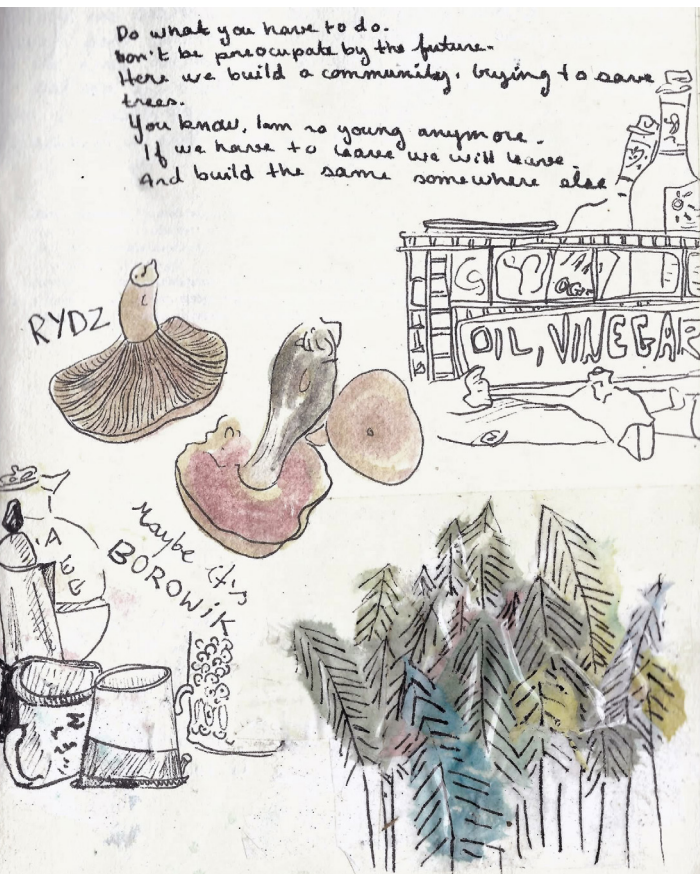 Do what you have to do.
Don't be preocupate by the future.
Here we build a community, trying to save
trees.
You know, I am no young anymore.
If we have to leave we will leave.
And build the same somewhere else
RYDZ
OIL, VINEGAR
Maybe it's
BOROWiK